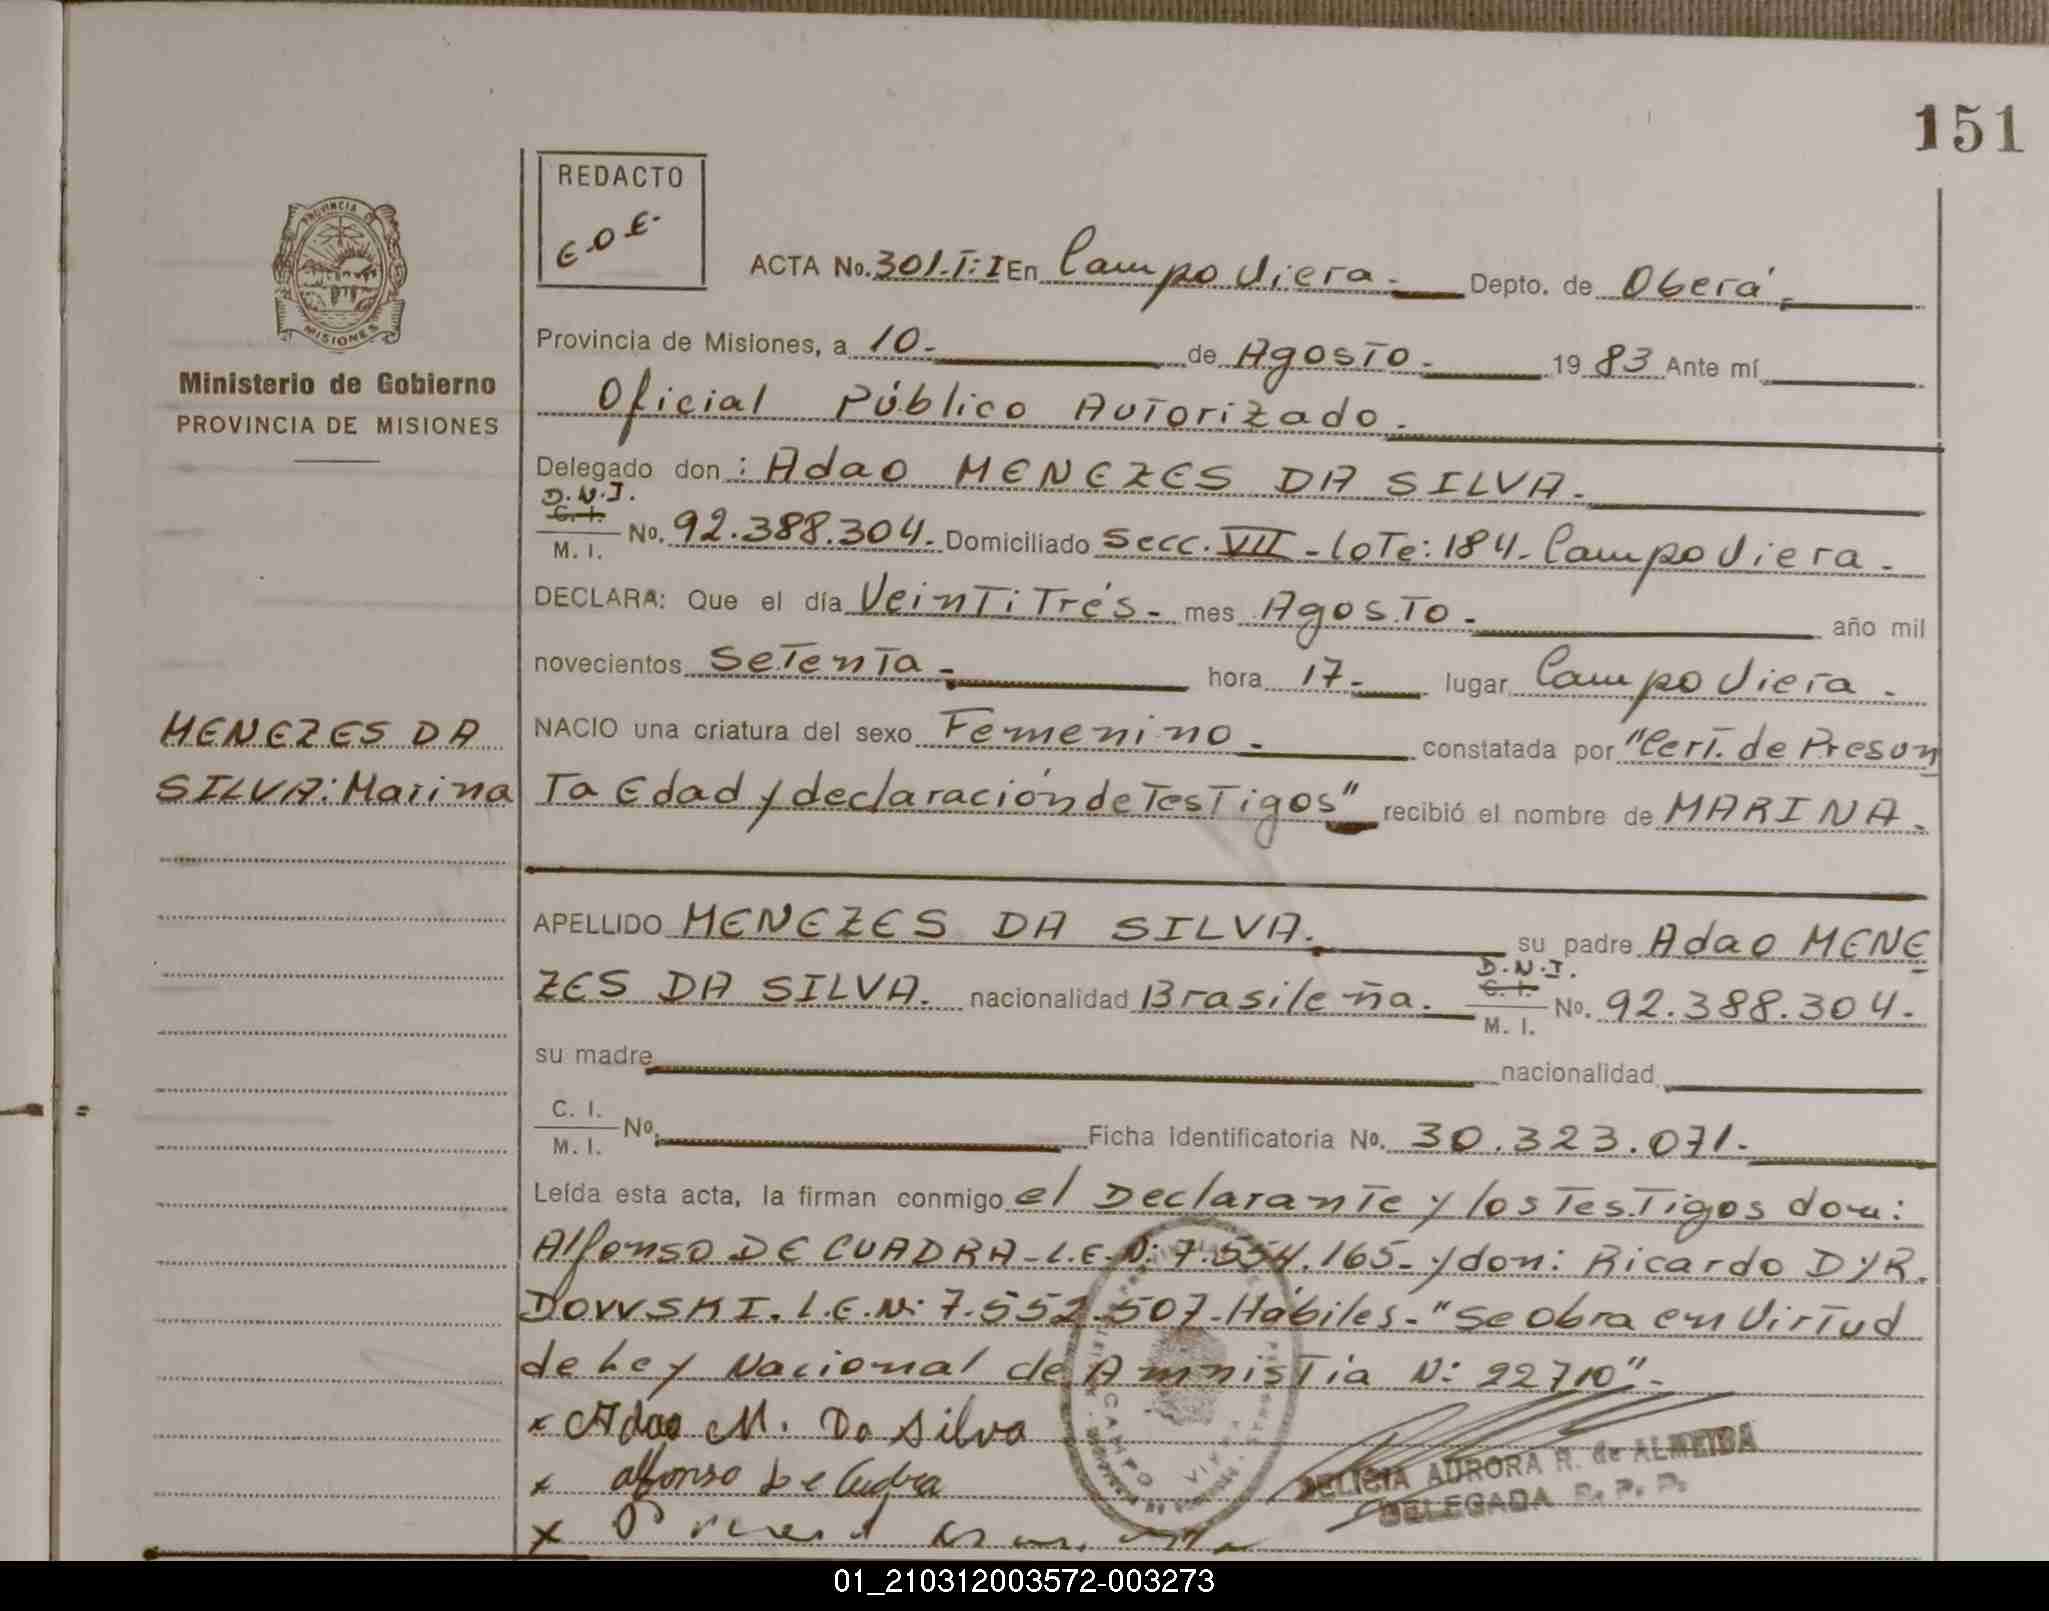 151
REDACTO
E.O.E.
PROVINCIA DE
MISIONES
Ministerio de Gobierno
PROVINCIA DE MISIONES
ACTA No. 301.T:I En Campo Viera.- Depto. de Oberá.
Provincia de Misiones, a 10.- de Agosto.- 1983 Ante mí
Oficial Público Autorizado.-
Delegado don: Adao MENEZES DA SILVA.-
D.N.I.
C. I.
M. I.
No. 92.388.304.- Domiciliado Secc. VII - Lote: 184.- Campo Viera.-
DECLARA: Que el día Veintitrés.- mes Agosto.- año mil
novecientos Setenta.- hora 17.- lugar Campo Viera.-
NACIO una criatura del sexo Femenino.- constatada por "Cert. de Presun
ta Edad y declaración de Testigos" recibió el nombre de MARINA.-
MENEZES DA
SILVA: Marina
APELLIDO MENEZES DA SILVA.- su padre Adao MENE
ZES DA SILVA. nacionalidad Brasileña.- D.N.I. C. I. M. I. No. 92.388.304.-
su madre nacionalidad
C. I.
M. I.
No. Ficha identificatoria No. 30.323.071.-
Leída esta acta, la firman conmigo el Declarante y los Testigos don:
Alfonso DE CUADRA - L.E.N: 7.554.165.- y don: Ricardo DYR.
DOVVSKI. L.E.N: 7.552.507.- Hábiles.- "Se obra en Virtud
de Ley Nacional de Amnistía N: 22710".-
x Adao M. Da Silva
x Alfonso De Cudra
x
CAMPO VIERA
DELICIA AURORA R. de ALMEIDA
DELEGADA R. P. P.
01_210312003572-003273